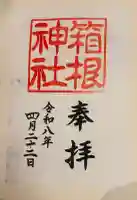 箱根
神社
奉拝
令和八年
四月二十二日